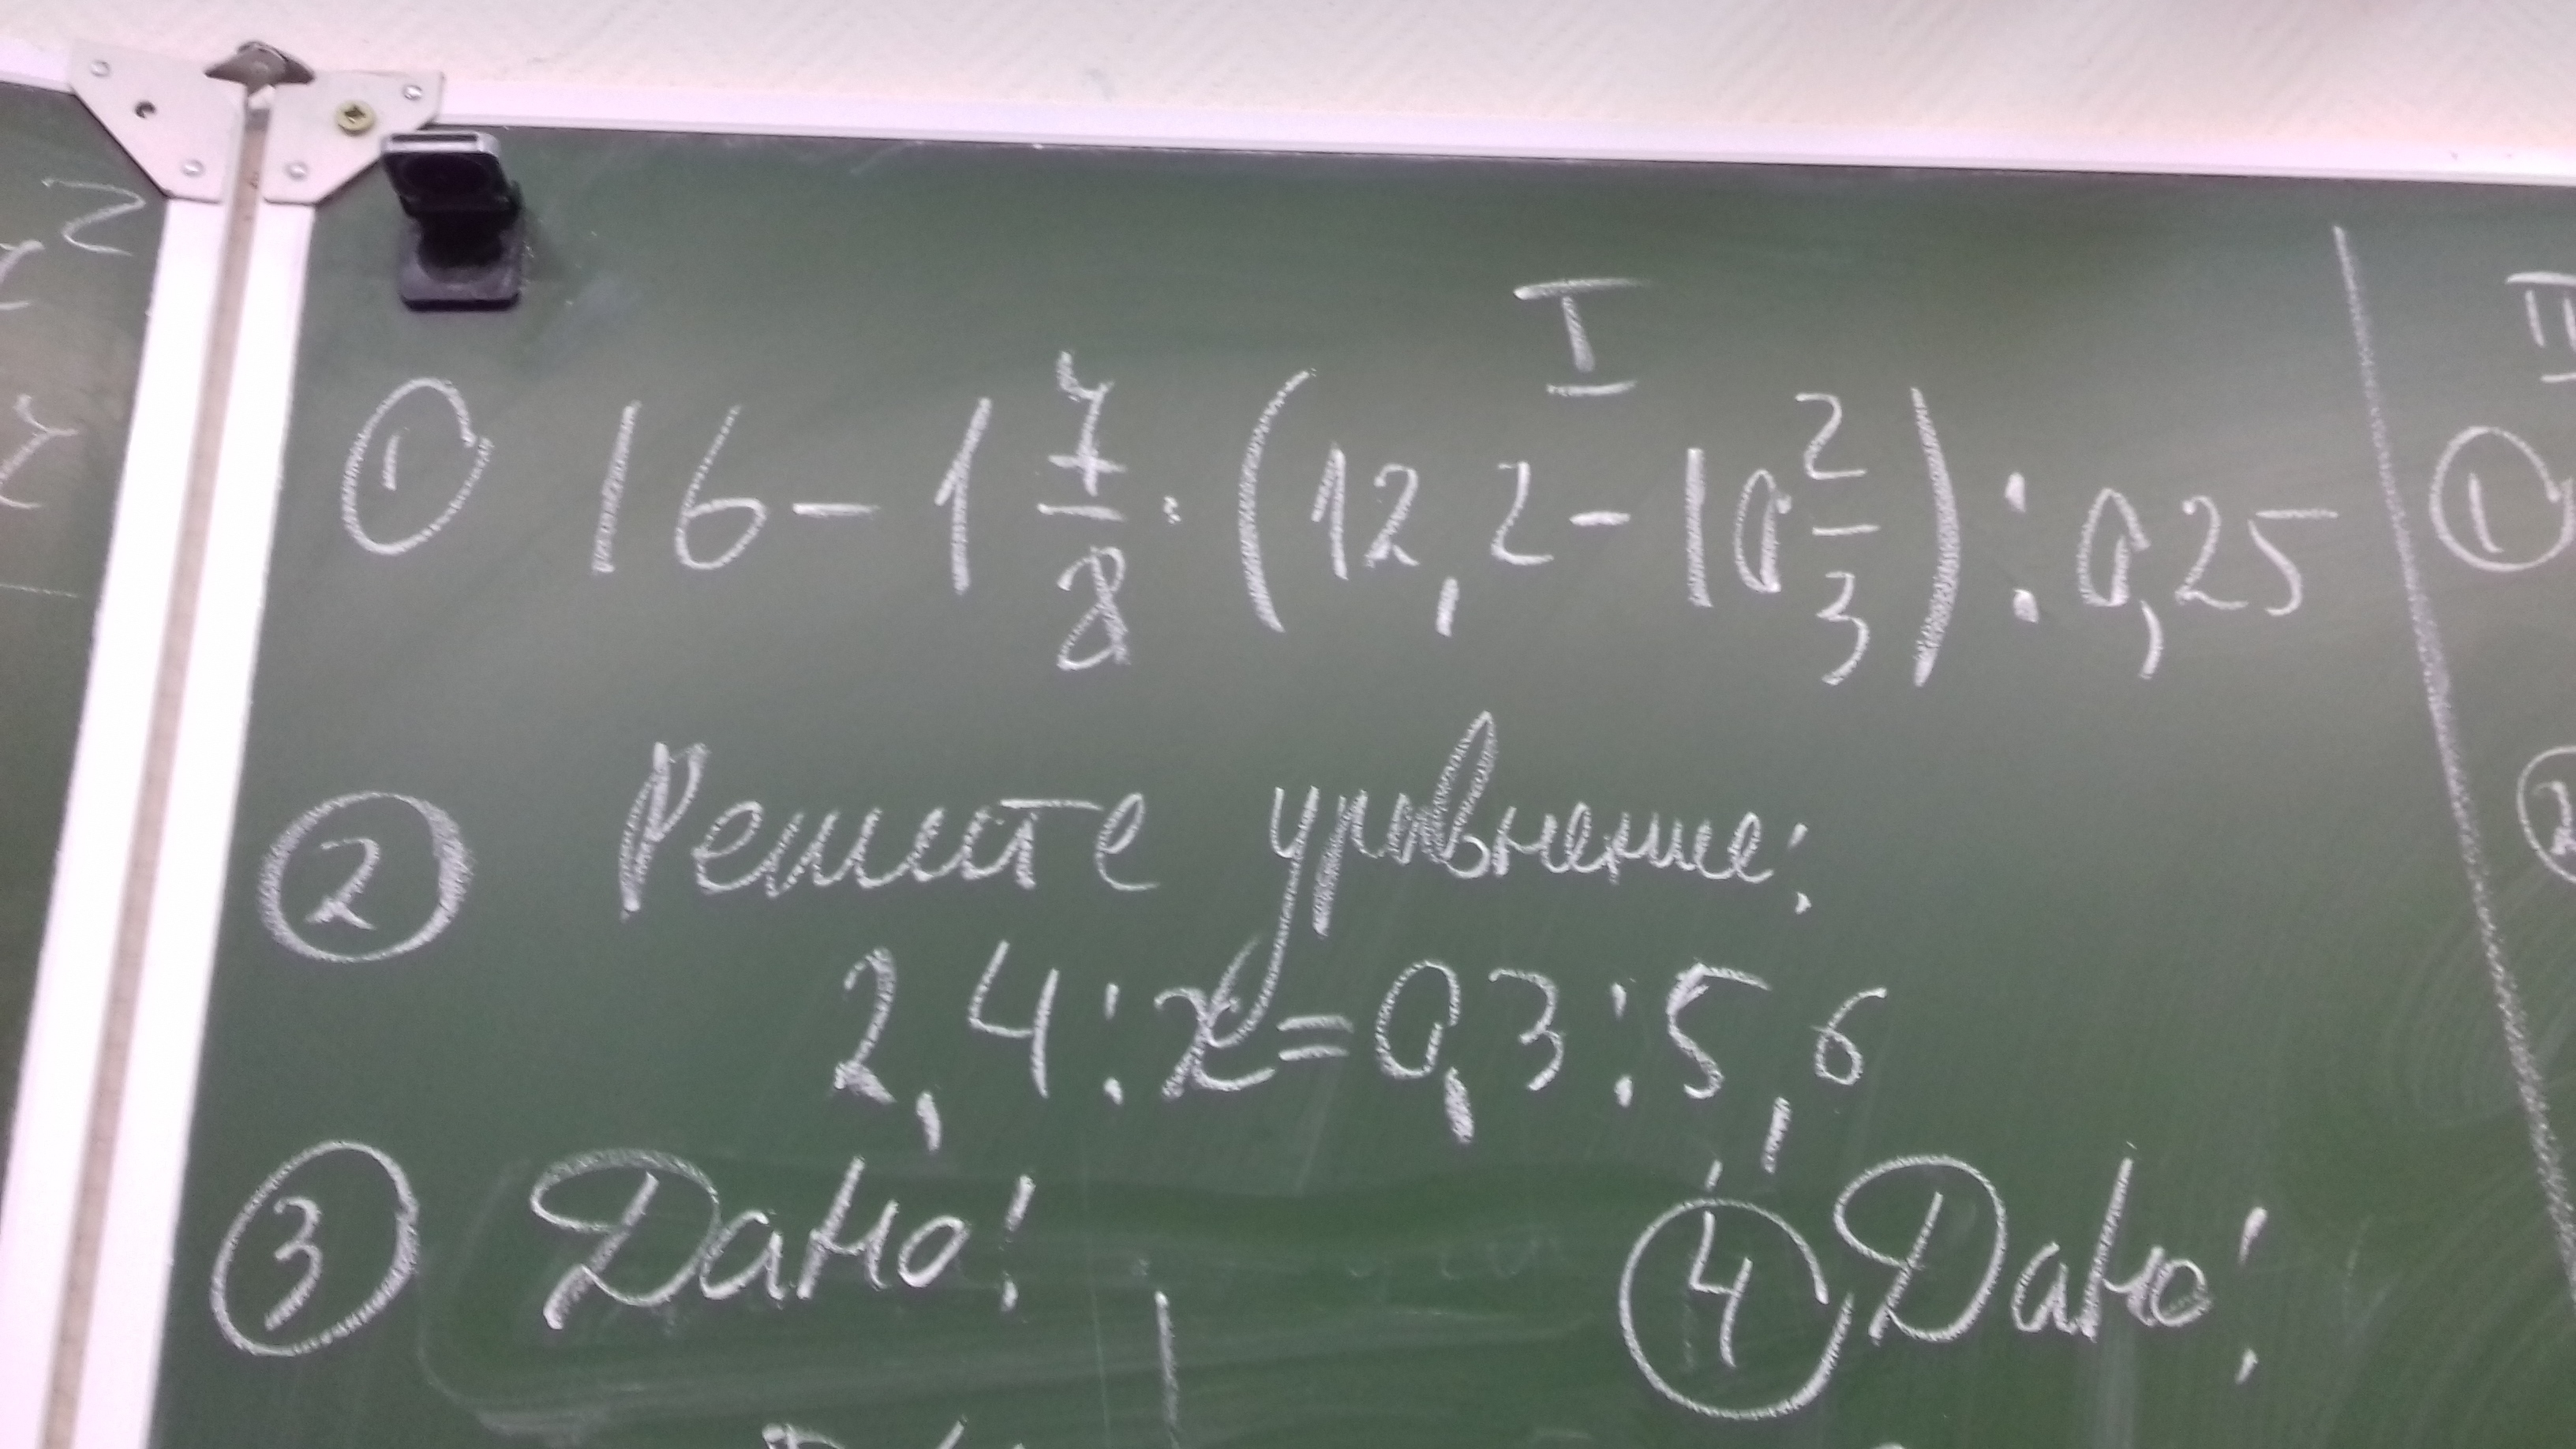 I
① 16 - 1 7/8 · (12,2 - 10 2/3) : 0,25
② Решите уравнение:
2,4 : x = 0,3 : 5,6
③ Дано:
④ Дано:
II
①
②